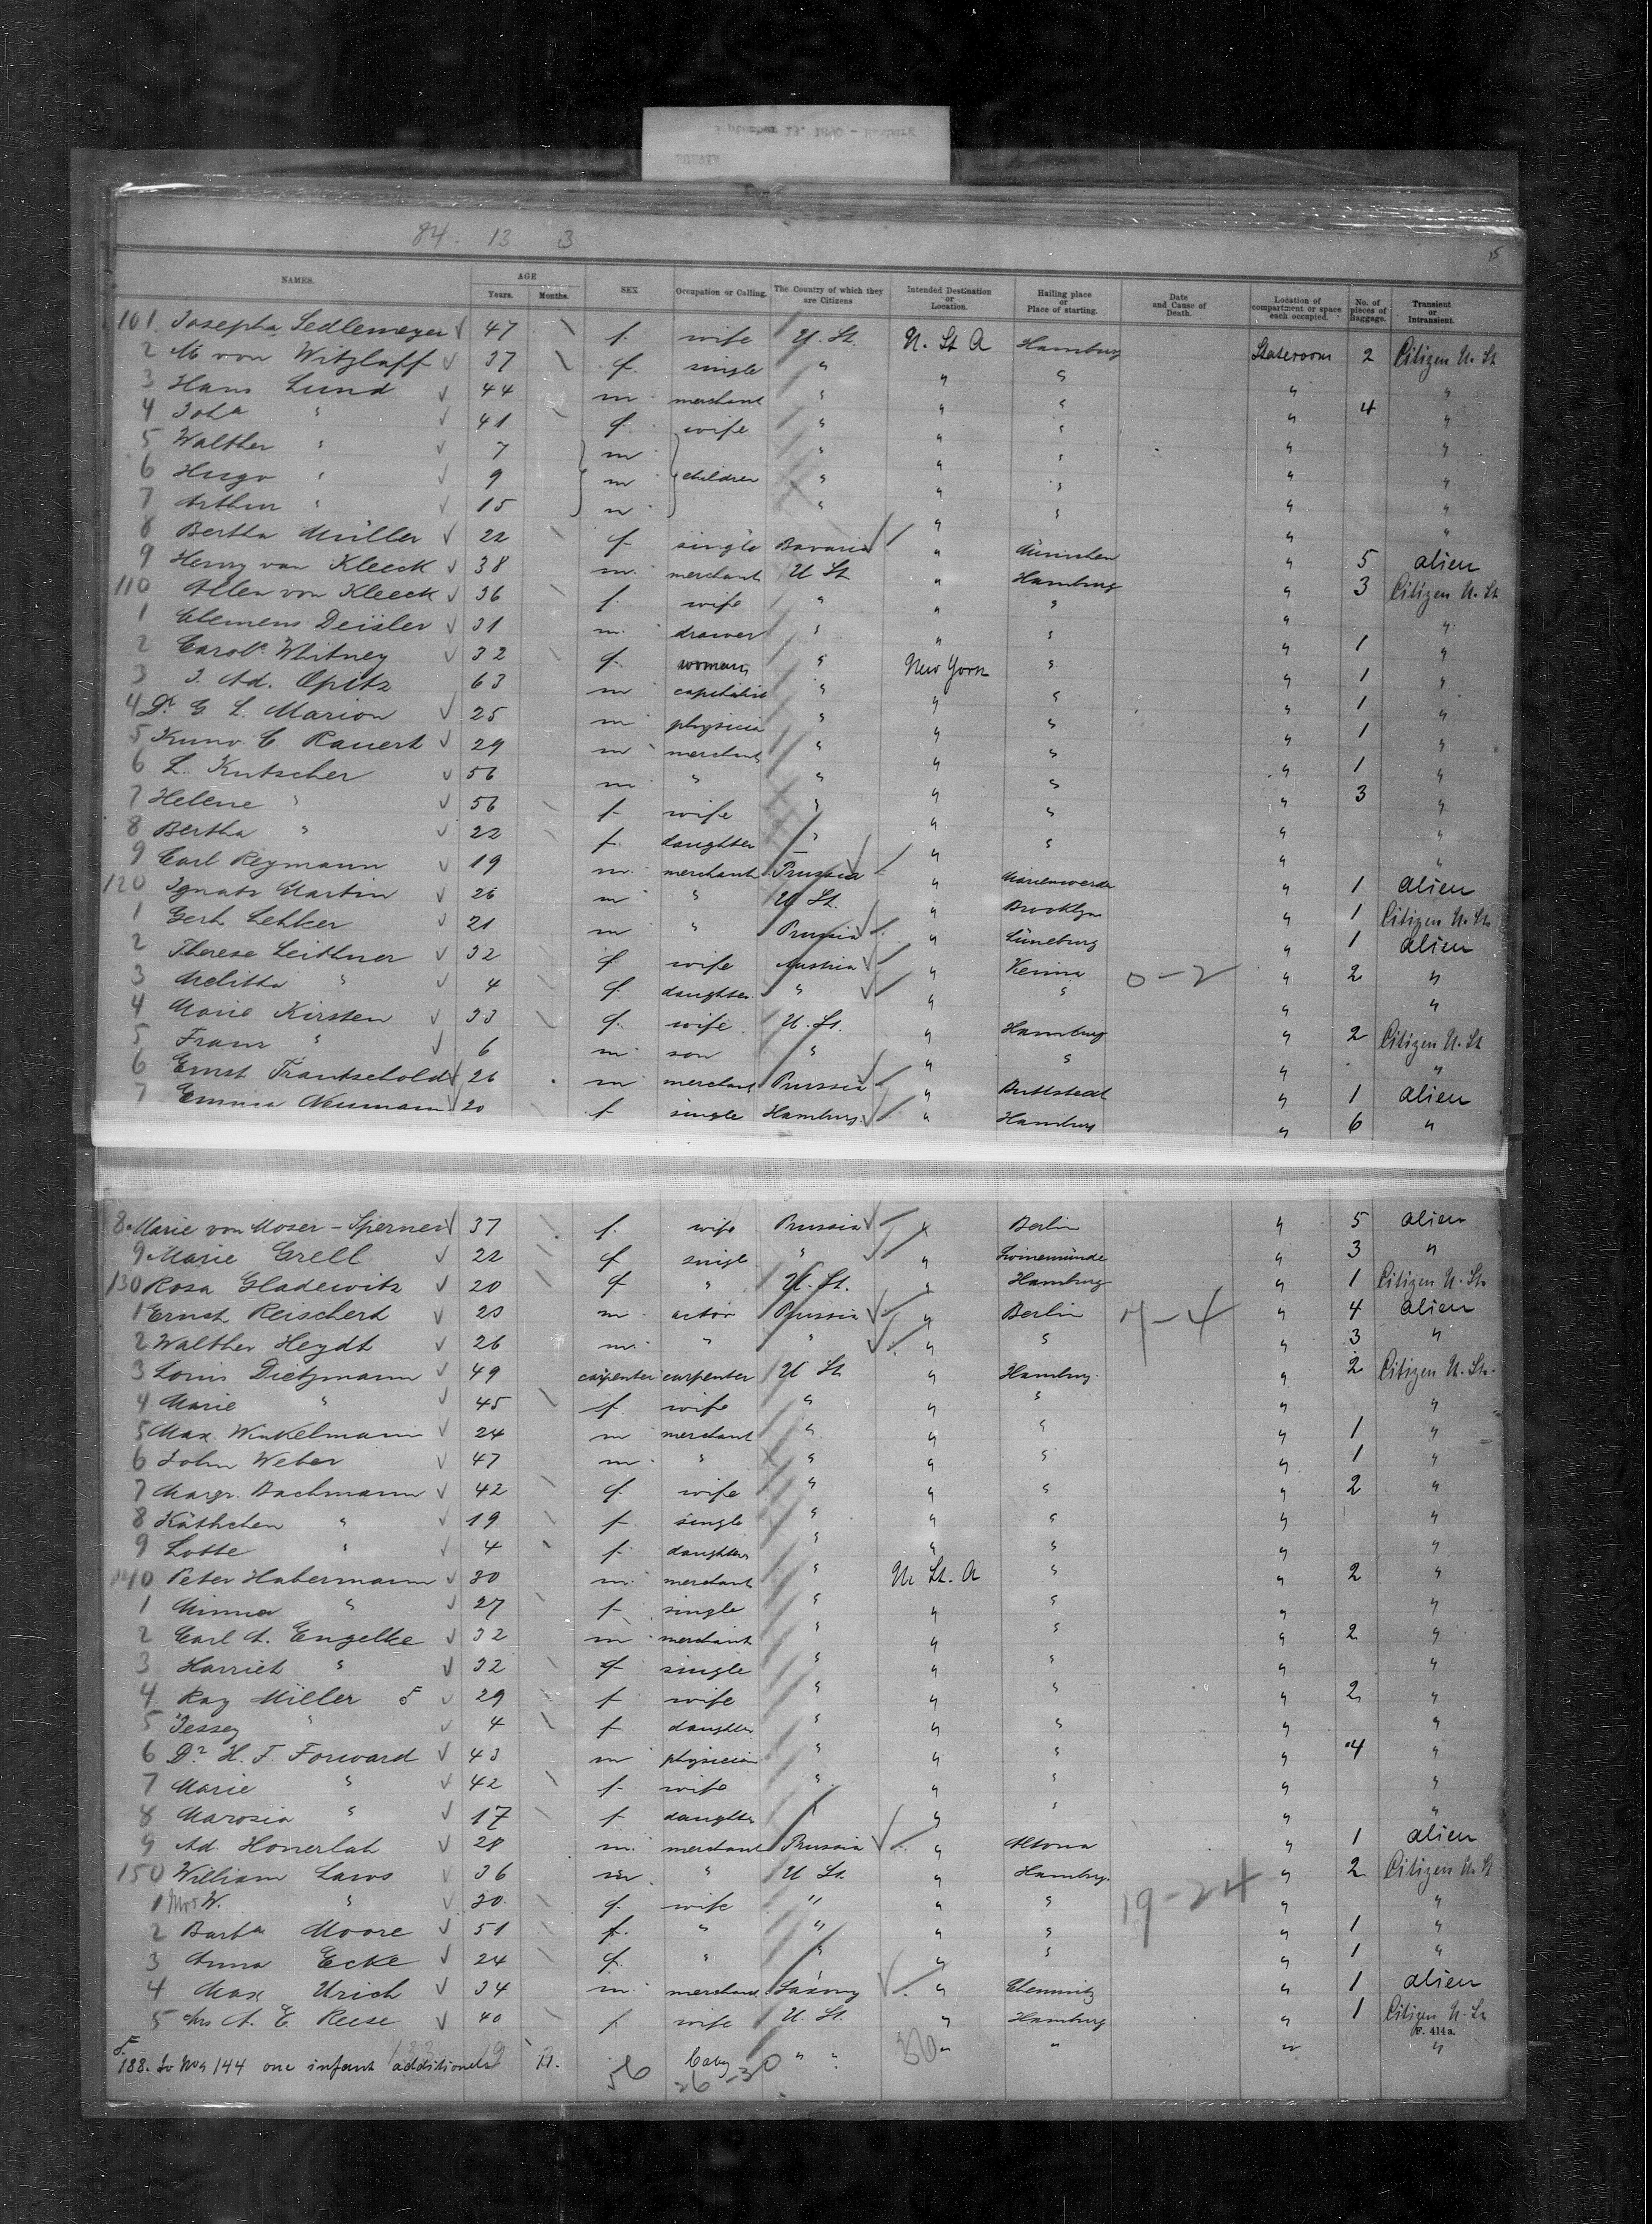 September 13, 1890 - Hamburg
84. 13 3
15
NAMES. AGE Years. Months. SEX Occupation or Calling. The Country of which they are Citizens Intended Destination or Location. Hailing place or Place of starting. Date and Cause of Death. Location of compartment or space each occupied. No. of pieces of Baggage. Transient or Intransient.
101 Josepha Sedlemeyer √ 47 f. wife U. St. U. St A Hamburg Stateroom 2 Citizen U. St
2 M von Witzlaff √ 37 f. single " " " " "
3 Hans Lund √ 44 m merchant " " " " 4 "
4 Joha " √ 41 f. wife " " " " "
5 Walther " √ 7 m " " " " "
6 Hugo " √ 9 m children " " " " "
7 Arthur " √ 15 m " " " " "
8 Bertha Müller √ 22 f single Bavaria √ " München " 5 alien
9 Henry van Kleeck √ 38 m. merchant U St. " Hamburg " 3 Citizen U. St
110 Allen von Kleeck √ 36 f. wife " " " " "
1 Clemens Deisler √ 31 m. drawer " " " " 1 "
2 Carola Whitney √ 32 f. woman " New York " " 1 "
3 J. Ad. Opitz 63 m capitalist " " " " 1 "
4 Dr. G. L. Marion √ 25 m physicia " " " " 1 "
5 Kuno C Rauert √ 29 m merchant " " " " 1 "
6 L. Kutscher √ 56 m " " " " " 3 "
7 Helene " √ 56 f wife " " " " "
8 Bertha " √ 22 f. daughter " " " " "
9 Carl Reymann √ 19 m. merchant Prussia √ " Marienwerder " 1 alien
120 Ignatz Martin √ 26 m " U St. " Brooklyn " 1 Citizen U. St.
1 Gerh Lehker √ 21 m " Prussia √ " Lüneburg " 1 alien
2 Therese Leithner √ 32 f wife Austria √ " 0-2 " 2 "
3 Melitta " √ 4 f. daughter " √ " " " "
4 Marie Kirsten √ 33 f. wife U. St. " Hamburg " 2 Citizen U. St
5 Franz " √ 6 m son " " " " "
6 Ernst Trautschold √ 26 m merchant Prussia √ " Buttstedt " 1 alien
7 Emma Neumann √ 20 f single Hamburg √ " Hamburg " 6 "
8. Marie von Moser-Sperner √ 37 f. wife Prussia √ " Berlin " 5 alien
9 Marie Grell √ 22 f single " √ " Swinemünde " 3 "
130 Rosa Gladewitz √ 20 f " U. St. " Hamburg " 1 Citizen U. St.
1 Ernst Reischert √ 20 m actor Prussia √ " Berlin 4 " 4 alien
2 Walther Heydt √ 26 m. " " √ " " " 3 "
3 Louis Dietzmann √ 49 carpenter carpenter U St. " Hamburg. " 2 Citizen U. St.
4 Marie " √ 45 f. wife " " " " "
5 Max Winkelmann √ 24 m merchant " " " " 1 "
6 John Weber √ 47 m. " " " " " 1 "
7 Margr. Bachmann √ 42 f. wife " " " " 2 "
8 Käthchen " √ 19 f single " " " " "
9 Lotte " √ 4 f daughter " " " " "
140 Peter Habermann √ 30 m. merchant " U. St. A " " 2 "
1 Minna " √ 27 f single " " " " "
2 Carl A. Engelke √ 32 m merchant " " " " 2 "
3 Harriet " √ 32 f single " " " " "
4 Ray Miller 5 √ 29 f wife " " " " 2 "
5 Jessey " √ 4 f daughter " " " " "
6 Dr H. F. Forward √ 43 m physician " " " " 4 "
7 Marie " √ 42 f wife " " " " "
8 Marosia " √ 17 f daughter " " " "
9 Ad. Honerlah √ 28 m. merchant Prussia √ " Altona " 1 alien
150 William Laws √ 36 m " U St. " Hamburg. 19-24 " 2 Citizen U. St
1 Mrs W. " √ 30. f. wife " " " " "
2 Barba Moore √ 51 f. " " " " " 1 "
3 Anna Ecke √ 24 f. " " " " " 1 "
4 Max Urich √ 34 m. merchant Saxony √ " Chemnitz " 1 alien
5 Mrs A. E. Reese √ 40 f wife U. St. " Hamburg " 1 Citizen U. St
R. 414a.
188. To No 144 one infant additional 56 baby 26-30 " " 80 " " " "